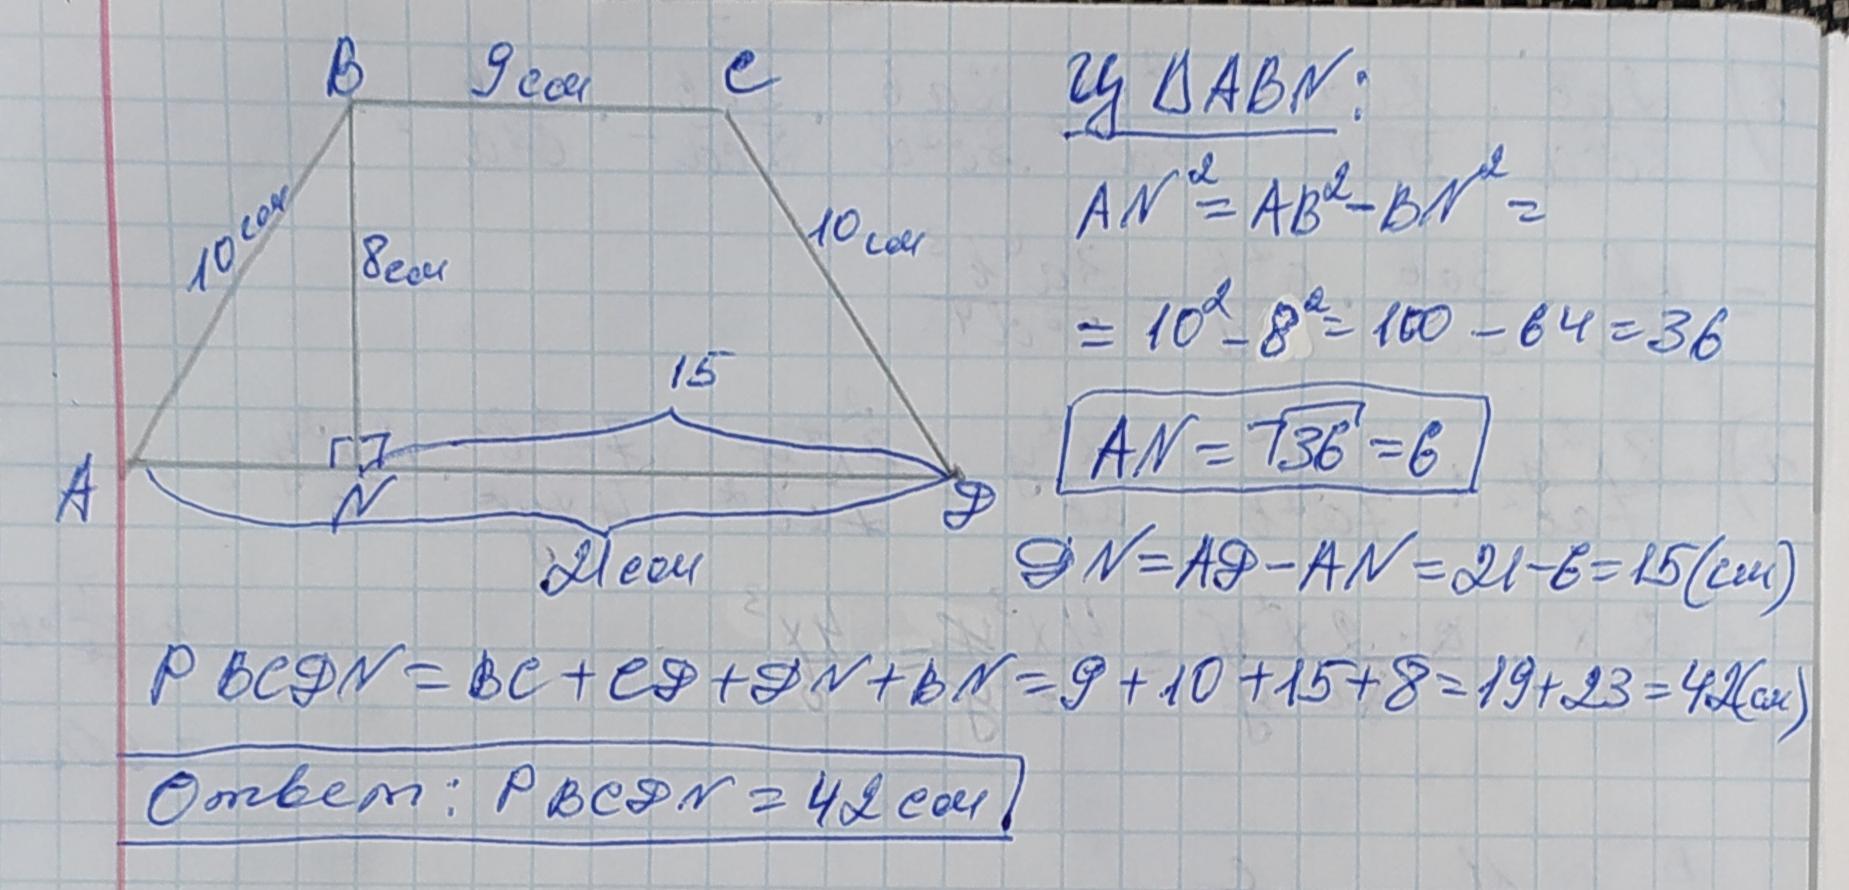 B 9см C
10см
8см
10см
15
A N D
21см
Из ΔABN:
AN² = AB² - BN² =
= 10² - 8² = 100 - 64 = 36
AN = √36 = 6
DN = AD - AN = 21 - 6 = 15 (см)
P BCDN = BC + CD + DN + BN = 9 + 10 + 15 + 8 = 19 + 23 = 42(см)
Ответ: P BCDN = 42 см